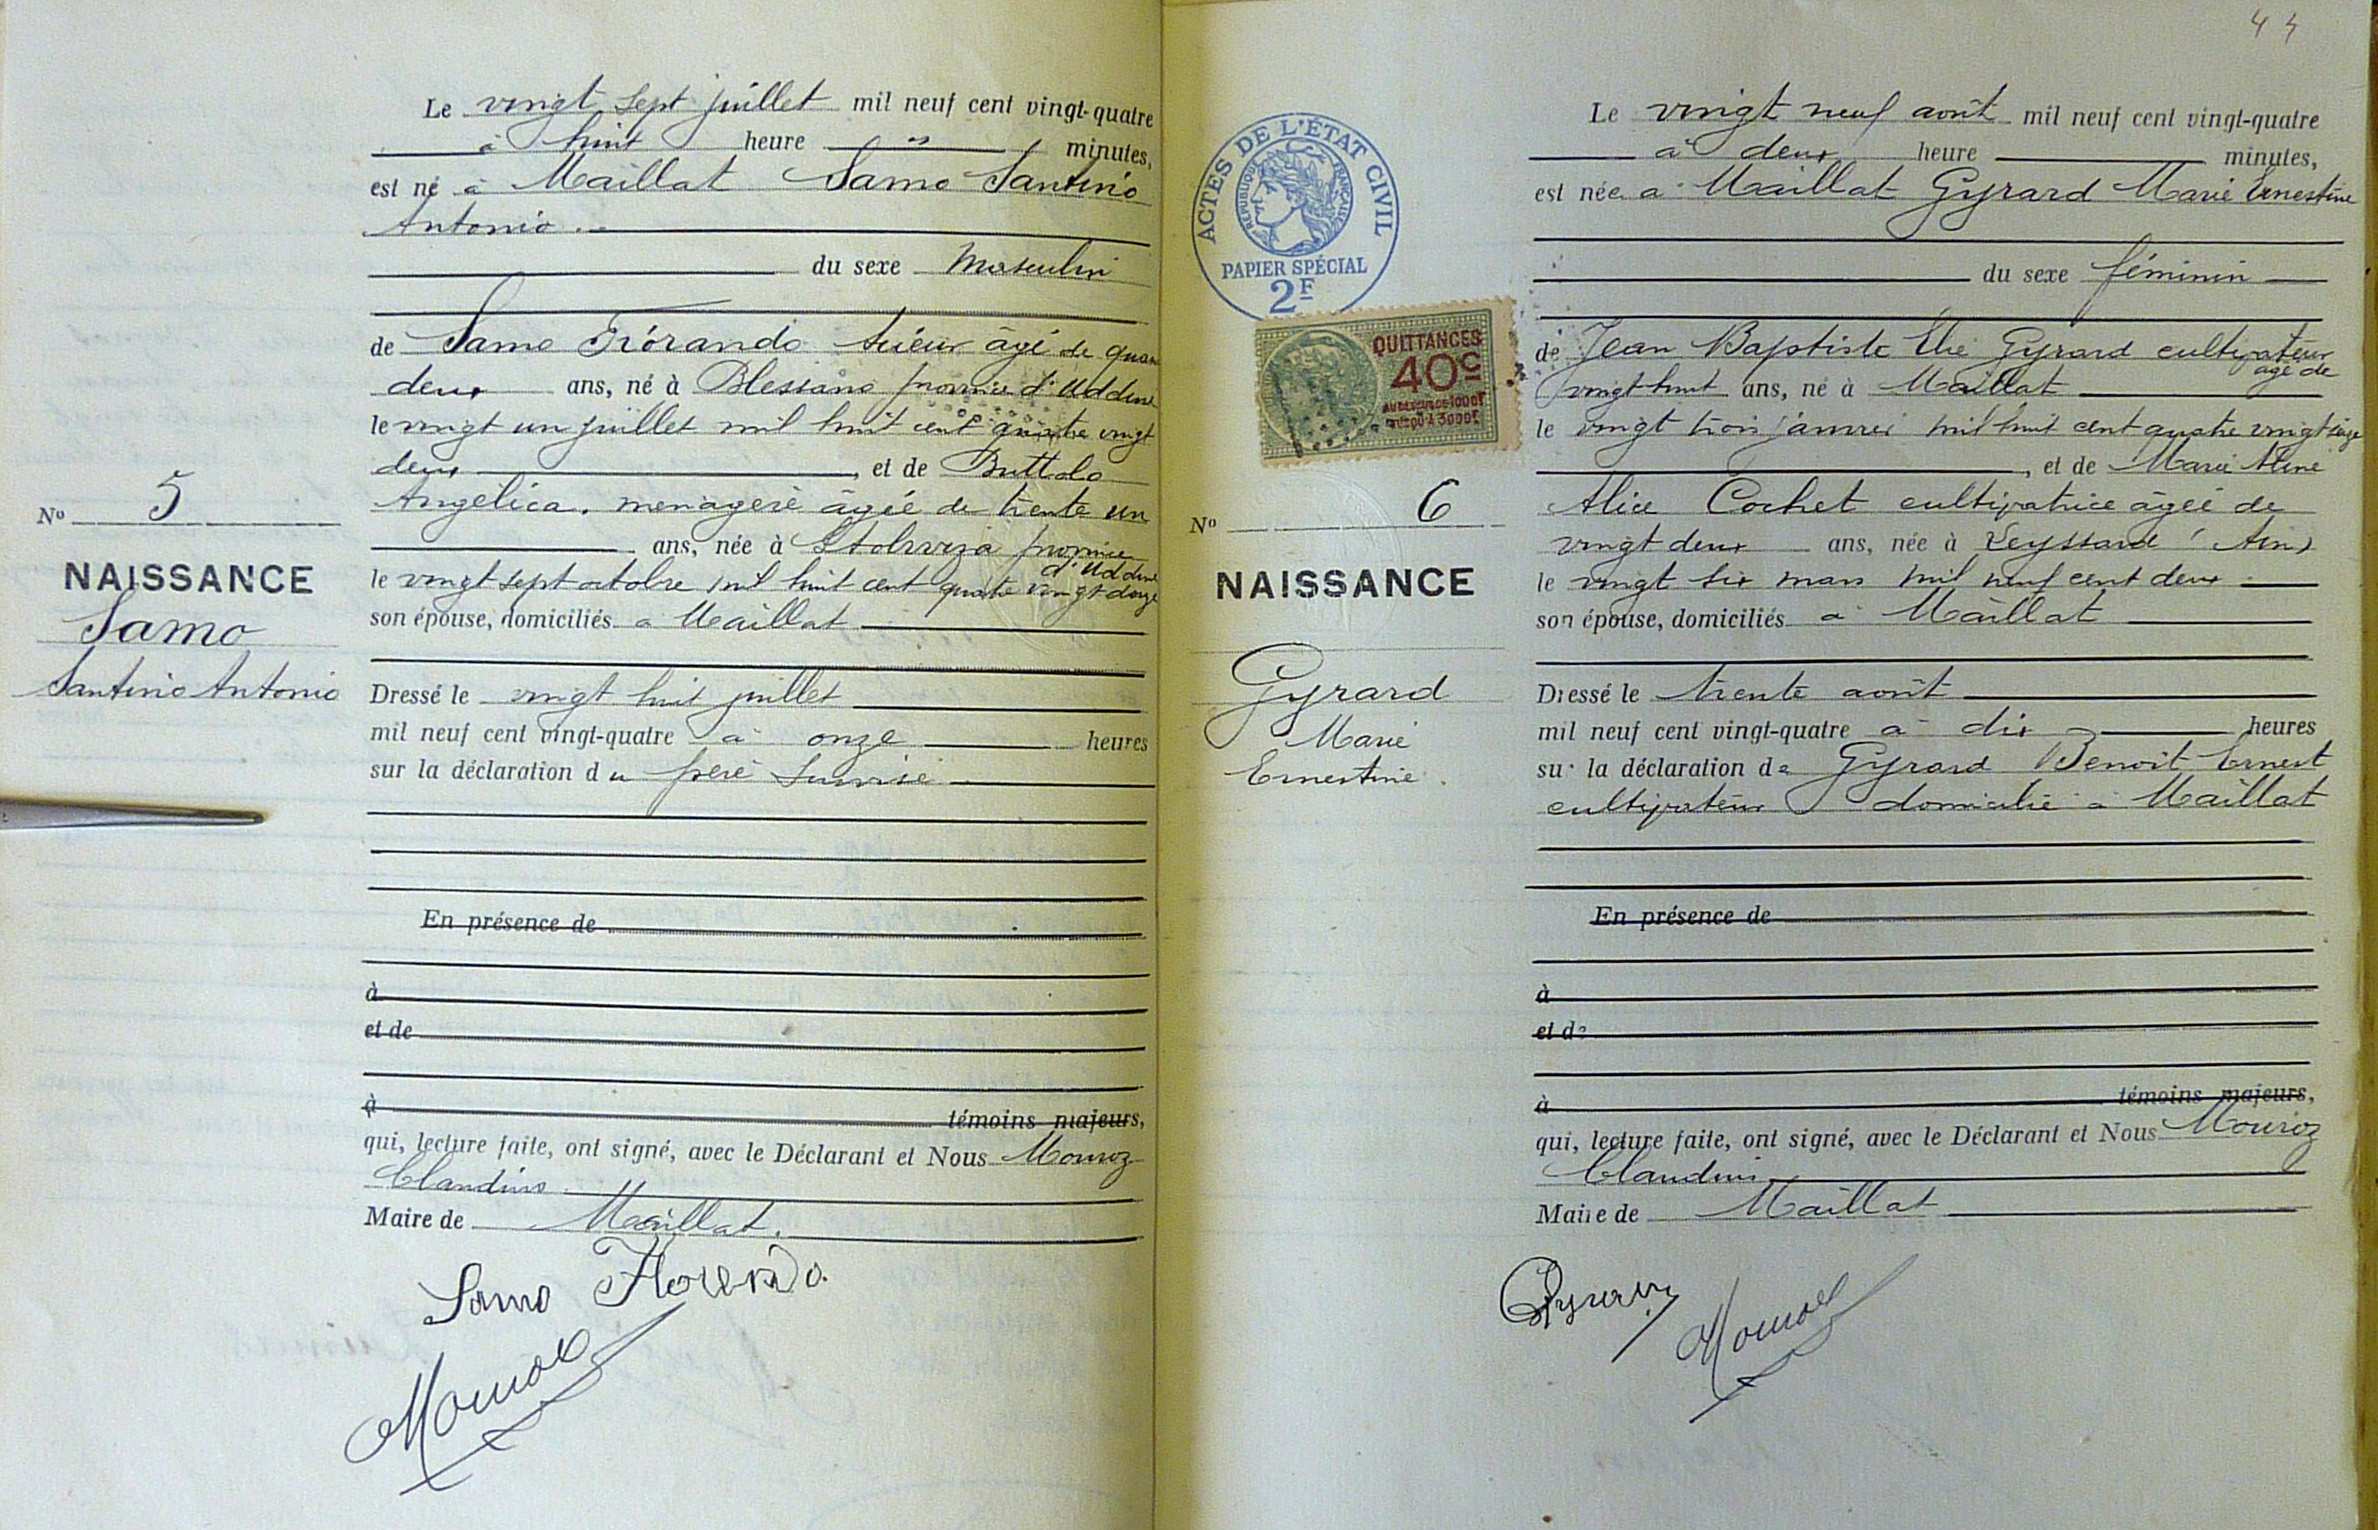 Le vingt sept juillet mil neuf cent vingt-quatre
à huit heure minutes,
est né à Maillat Samo Santino
Antonio.
du sexe Masculin
de Samo age de quar
deux ans, né à Blessano province d'Uddine
le vingt un juillet mil huit cent quatre vingt
deux, et de Buttolo
Angélica, menagère âgée de trente un
ans, née à Stolvizza province
d'Uddine
le vingt sept octobre mil huit cent quatre vingt douze
son épouse, domiciliés à Maillat
Dressé le vingt huit juillet
mil neuf cent vingt-quatre à onze heures
sur la déclaration du père
En présence de
à
et de
à témoins majeurs,
qui, lecture faite, ont signé, avec le Déclarant et Nous Mouroz
Claudius
Maire de Maillat.
Samo
Mouroz
No 5
NAISSANCE
Samo
Santino Antonio
44
ACTES DE L'ÉTAT CIVIL
RÉPUBLIQUE FRANÇAISE
PAPIER SPÉCIAL
2F
QUITTANCES
40c
No 6
NAISSANCE
Gyrard
Marie
Ernestine.
Le vingt neuf août mil neuf cent vingt-quatre
à deux heure minutes,
est née à Maillat Gyrard Marie Ernestine
du sexe féminin
de Jean Baptiste Elie Gyrard cultivateur
agé de
vingt huit ans, né à Maillat
le vingt trois janvier mil huit cent quatre vingt seize
, et de Marie Aline
Alice Cochet cultivatrice âgée de
vingt deux ans, née à Leyssard (Ain)
le vingt six mars mil neuf cent deux
son épouse, domiciliés à Maillat
Dressé le trente août
mil neuf cent vingt-quatre à dix heures
sur la déclaration de Gyrard Benoit Ernest
cultivateur domicilié à Maillat
En présence de
à
et de
à témoins majeurs,
qui, lecture faite, ont signé, avec le Déclarant et Nous Mouroz
Claudius
Maire de Maillat
Gyrard
Mouroz